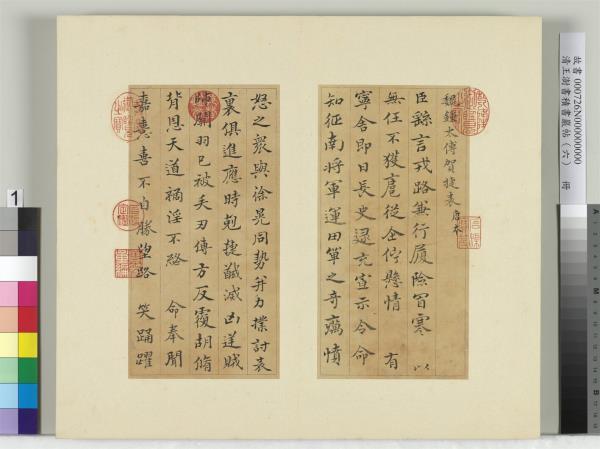 魏鍾太傅賀捷表 唐本
臣繇言戎路兼行履險冒寒 以
無任不獲扈從企佇懸情 有
寧舍即日長史逯充宣示令命
知征南將軍運田單之奇厲憤
怒之衆與徐晃同勢并力撲討表
裏俱進應時剋捷馘滅凶逆賊
帥關羽已被矢刃傅方反覆胡脩
背恩天道禍淫不終 命奉聞
嘉憙喜不自勝望路 笑踊躍
故書 000726N000000000
清王澍書積書巖帖（六） 冊
1